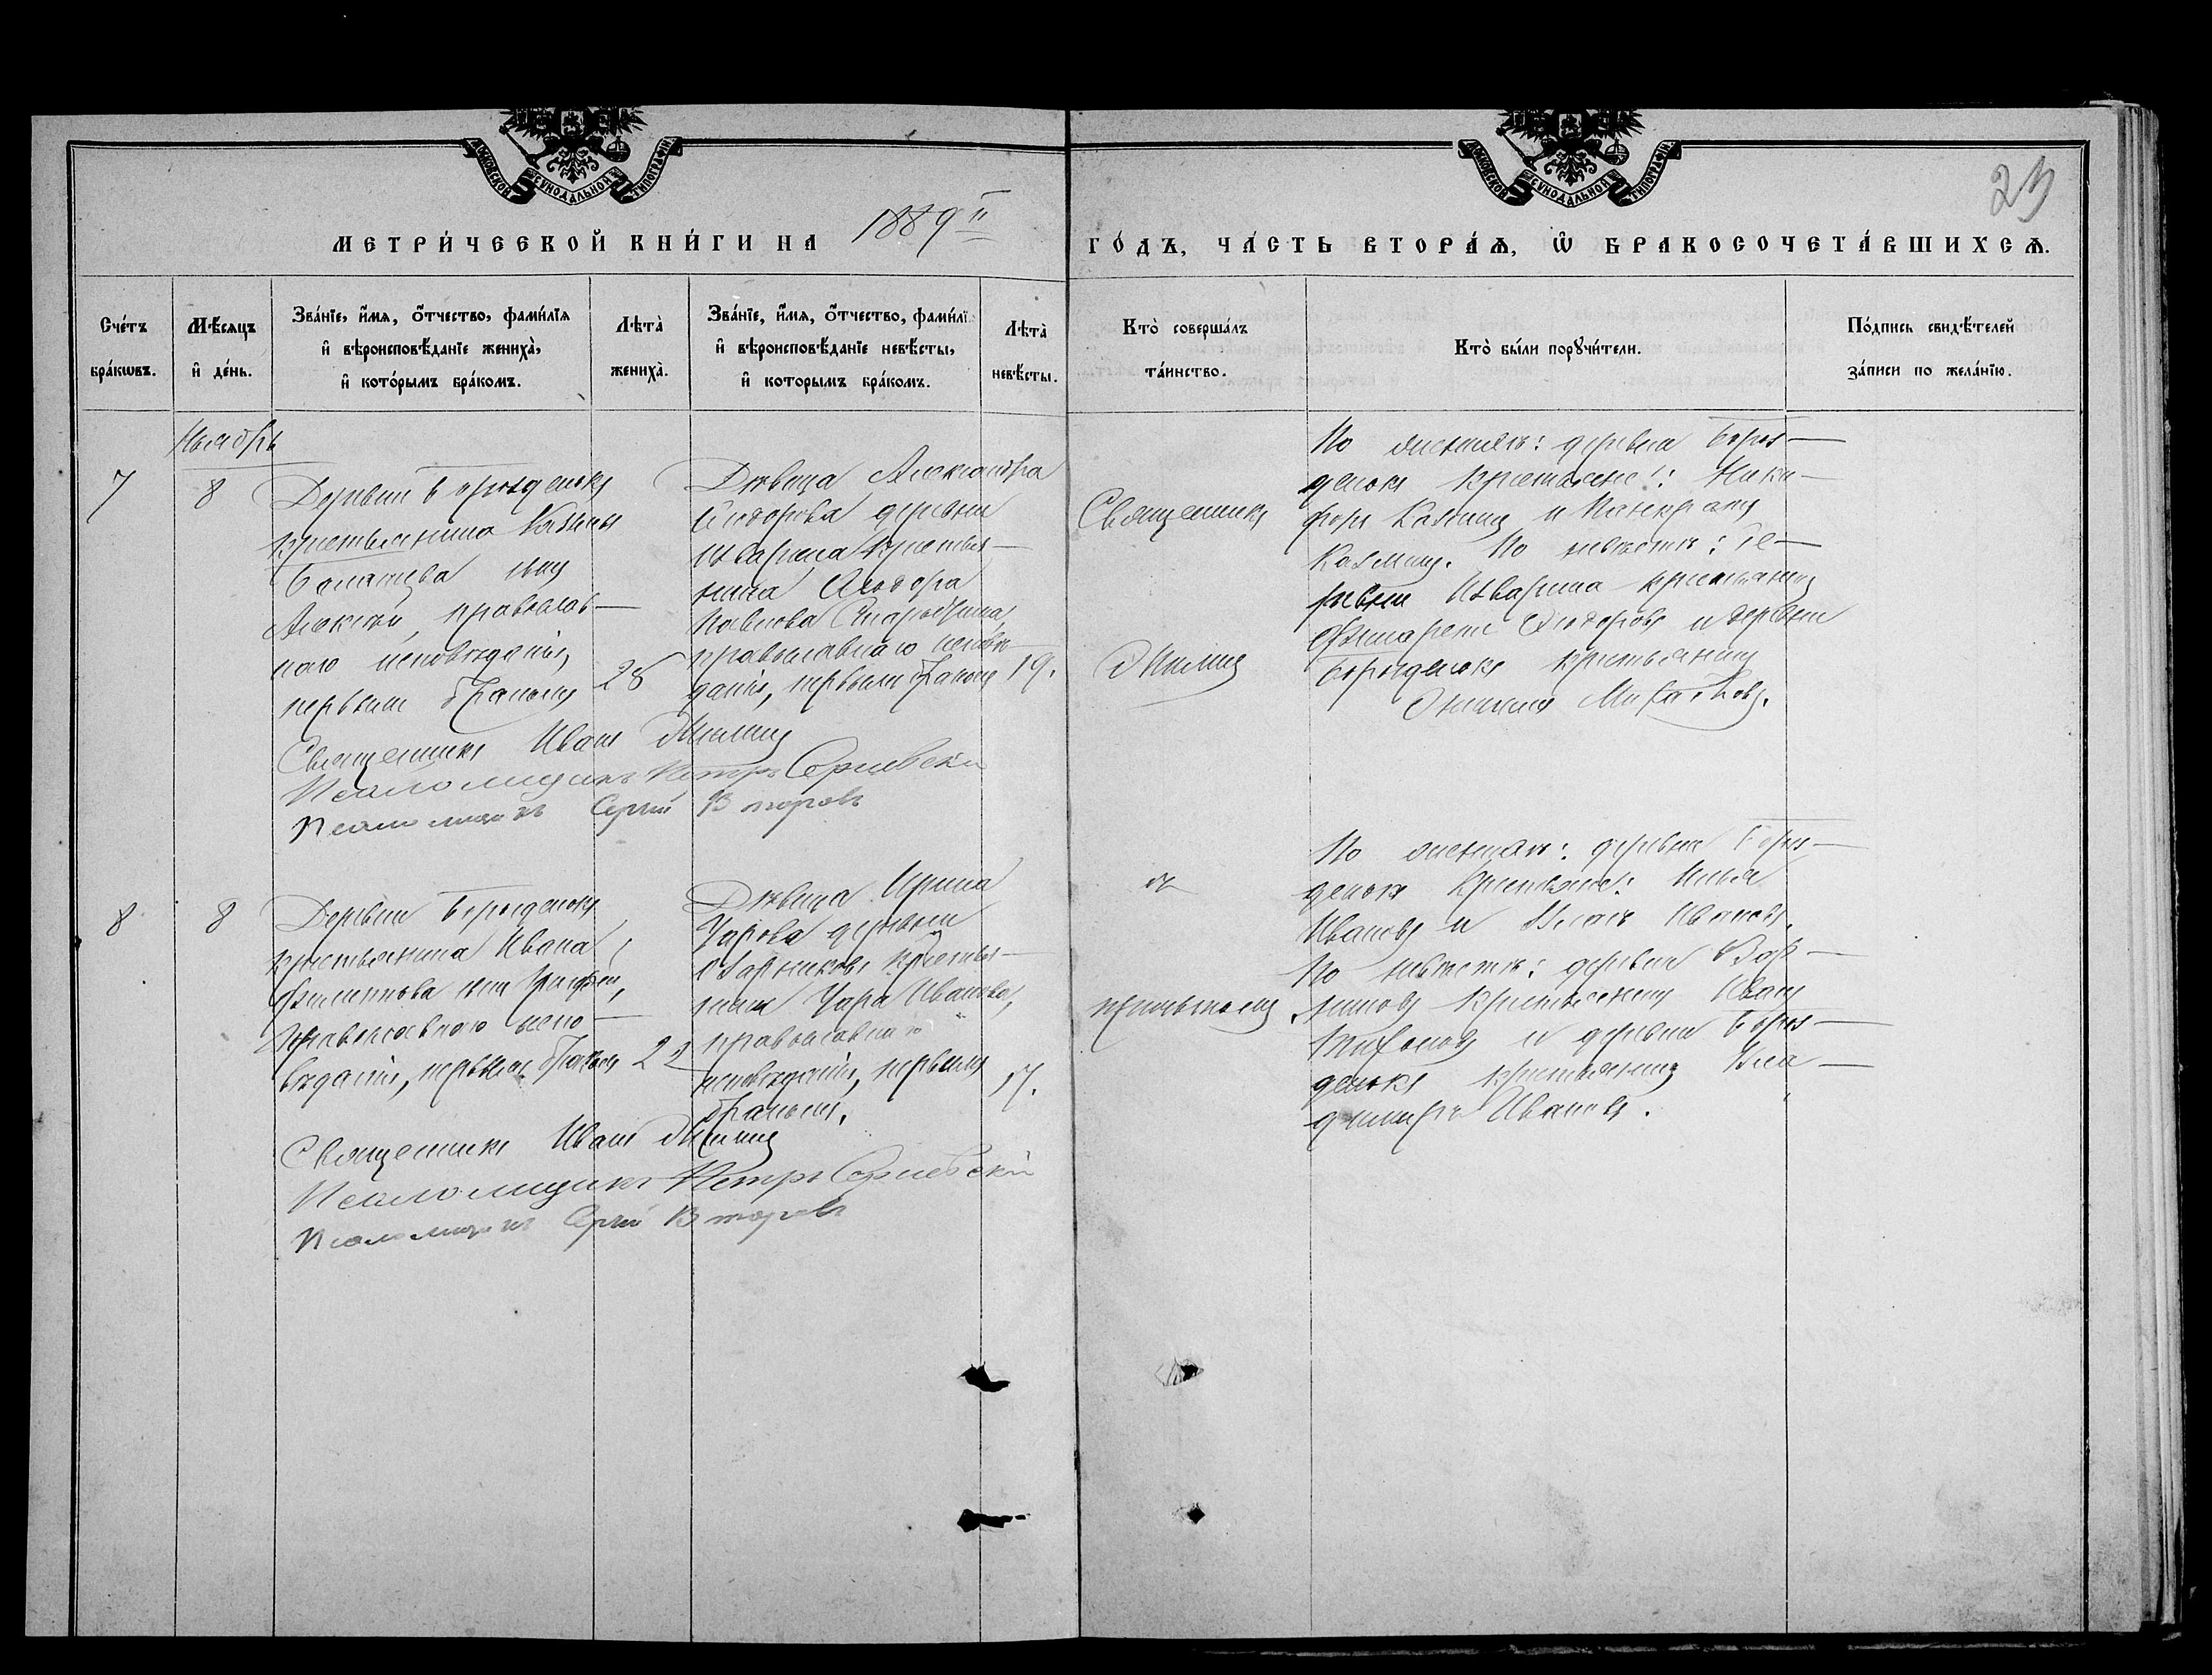 МОСКОВСКОЙ СѴНОДАЛЬНОЙ ТИПОГРАФІИ
МОСКОВСКОЙ СѴНОДАЛЬНОЙ ТИПОГРАФІИ
23
МЕТРИ́ЧЕСКОЙ КНИ́ГИ НА 1889й ГО́ДЪ, ЧА́СТЬ ВТОРА́Ѧ, Ѽ БРАКОСОЧЕТА́ВШИХСѦ.
Сче́тъ бра́кѡвъ.
Мѣ́сѧцъ и҆ де́нь.
Зва́нїе, и҆́мѧ, ѻ҆́тчество, фами́лїѧ и҆ вѣроисповѣ́данїе жениха̀, и҆ кото́рымъ бра́комъ.
Лѣта̀ жениха̀.
Зва́нїе, и҆́мѧ, ѻ҆́тчество, фами́лї и҆ вѣроисповѣ́данїе невѣ́сты, и҆ которымъ бра́комъ.
Лѣта̀ невѣ́сты.
Кто̀ соверша́лъ та́инство.
Кто̀ бы́ли порꙋчи́тели.
По́дпись свидѣ́телей за́писи по жела́нїю.
Ноябрь
7
8
Деревни Бороденокъ
крестьянина Козмы
сынъ
Алексѣй, православ-
наго исповѣданія,
первымъ бракомъ
28
Дѣвица Александра
Ѳедорова деревни
Изварина крестья-
нина Ѳедора
Павлова
православнаго исповѣ-
данія, первымъ бракомъ
19.
Священникъ
І Милинъ
По женихѣ: деревни Боро-
денокъ крестьяне: Ники-
форъ Козминъ и Панкратъ
Козминъ. По невѣстѣ: де-
ревни Изварина крестьянинъ
Ѳедоровъ и деревни
Бороденокъ крестьянинъ
Священникъ Иванъ Милинъ
Псаломщикъ Петръ Сергіевскій
Псаломщикъ Сергій Второвъ
8
8
Деревни Бороденокъ
крестьянина Ивана
Филиппова сынъ
православнаго испо-
вѣданія, первымъ бракомъ
22
Дѣвица Ирина
Уарова деревни
крестья-
нина Уара Иванова,
православнаго
исповѣданія, первымъ
бракомъ.
17.
По женихѣ: деревни Боро-
денокъ крестьяне: Илья
Ивановъ и Ивановъ.
По невѣстѣ: деревни
крестьянинъ Иванъ
Тихоновъ и деревни Боро-
денокъ крестьянинъ Вла-
димиръ Ивановъ.
Священникъ Иванъ Милинъ
Псаломщикъ Петръ Сергіевскій
Псаломщикъ Сергій Второвъ